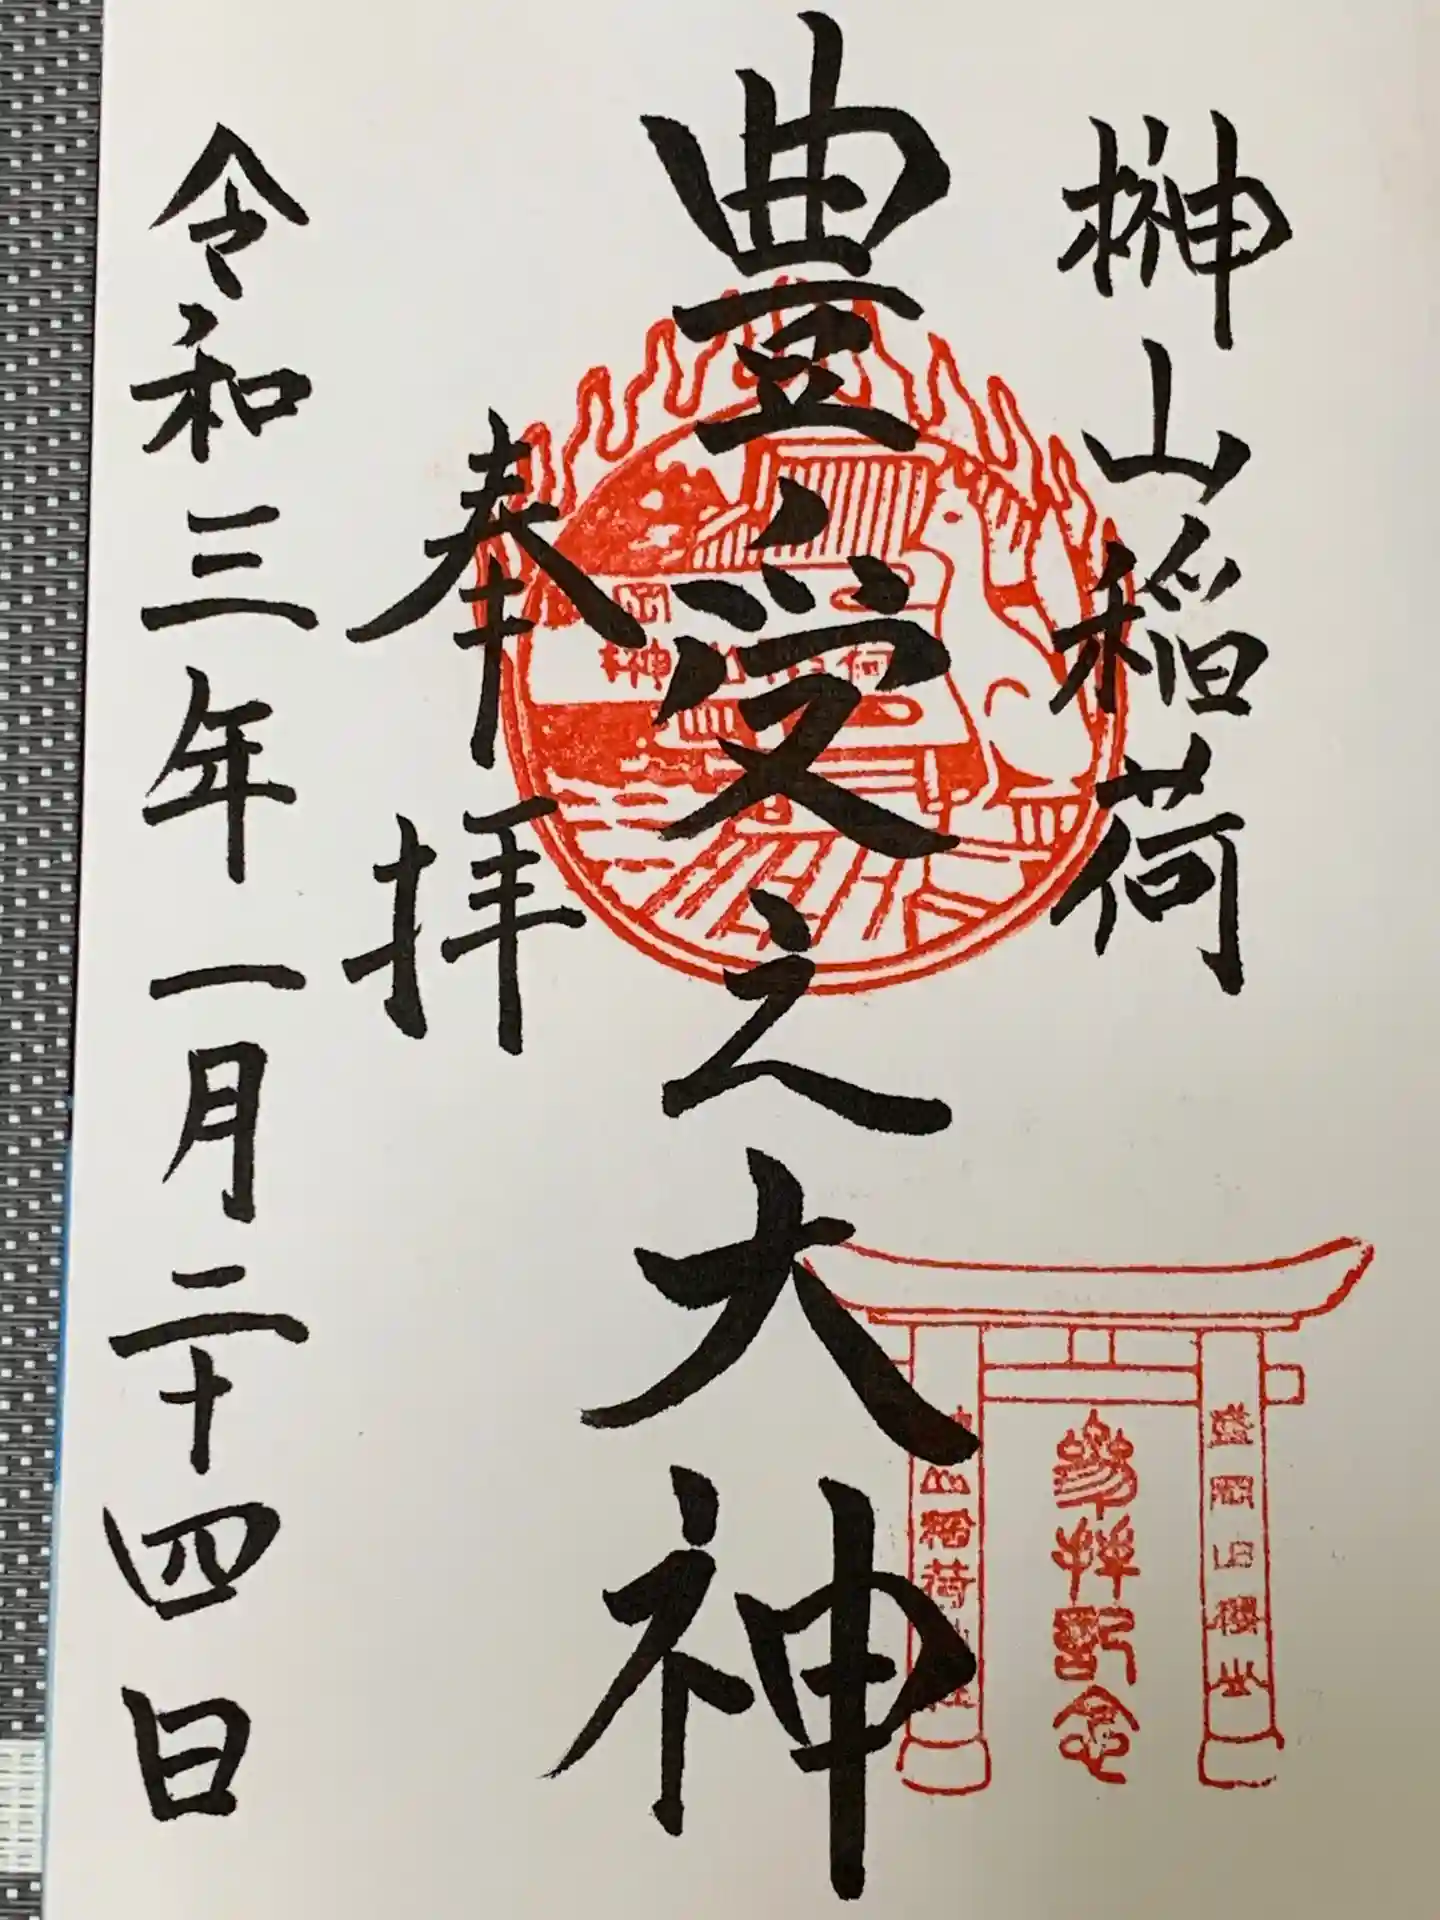 榊山稲荷
豊受之大神
奉拝
令和三年一月二十四日
盛岡旧櫻山
参拝記念
山稲荷
岡
榊
荷